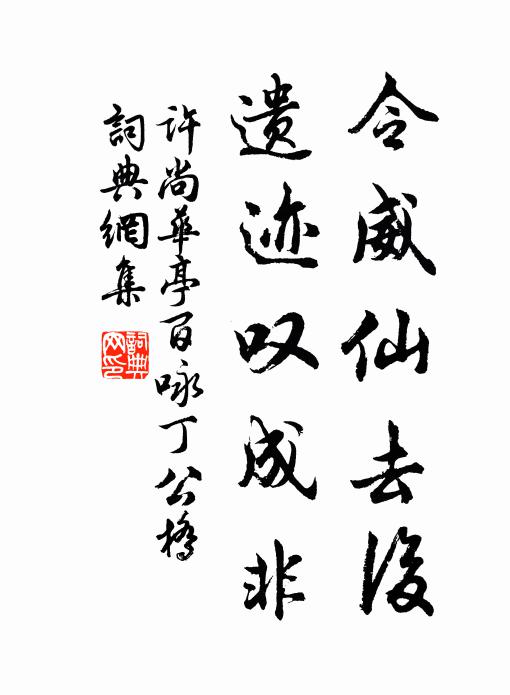 令威仙去後
遗迹叹成非
許尚華亭百咏丁公橋
詞典網集
詞典網印